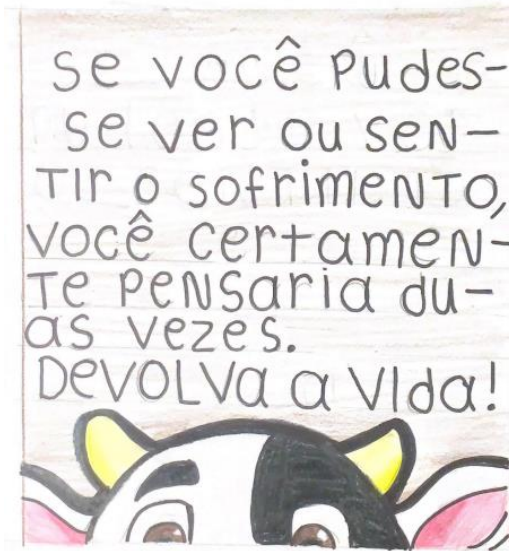 se você Pudes-
se ver ou sen-
Tir o sofrimento,
você certamen-
Te Pensaria du-
as vezes.
DevoLva a Vida!